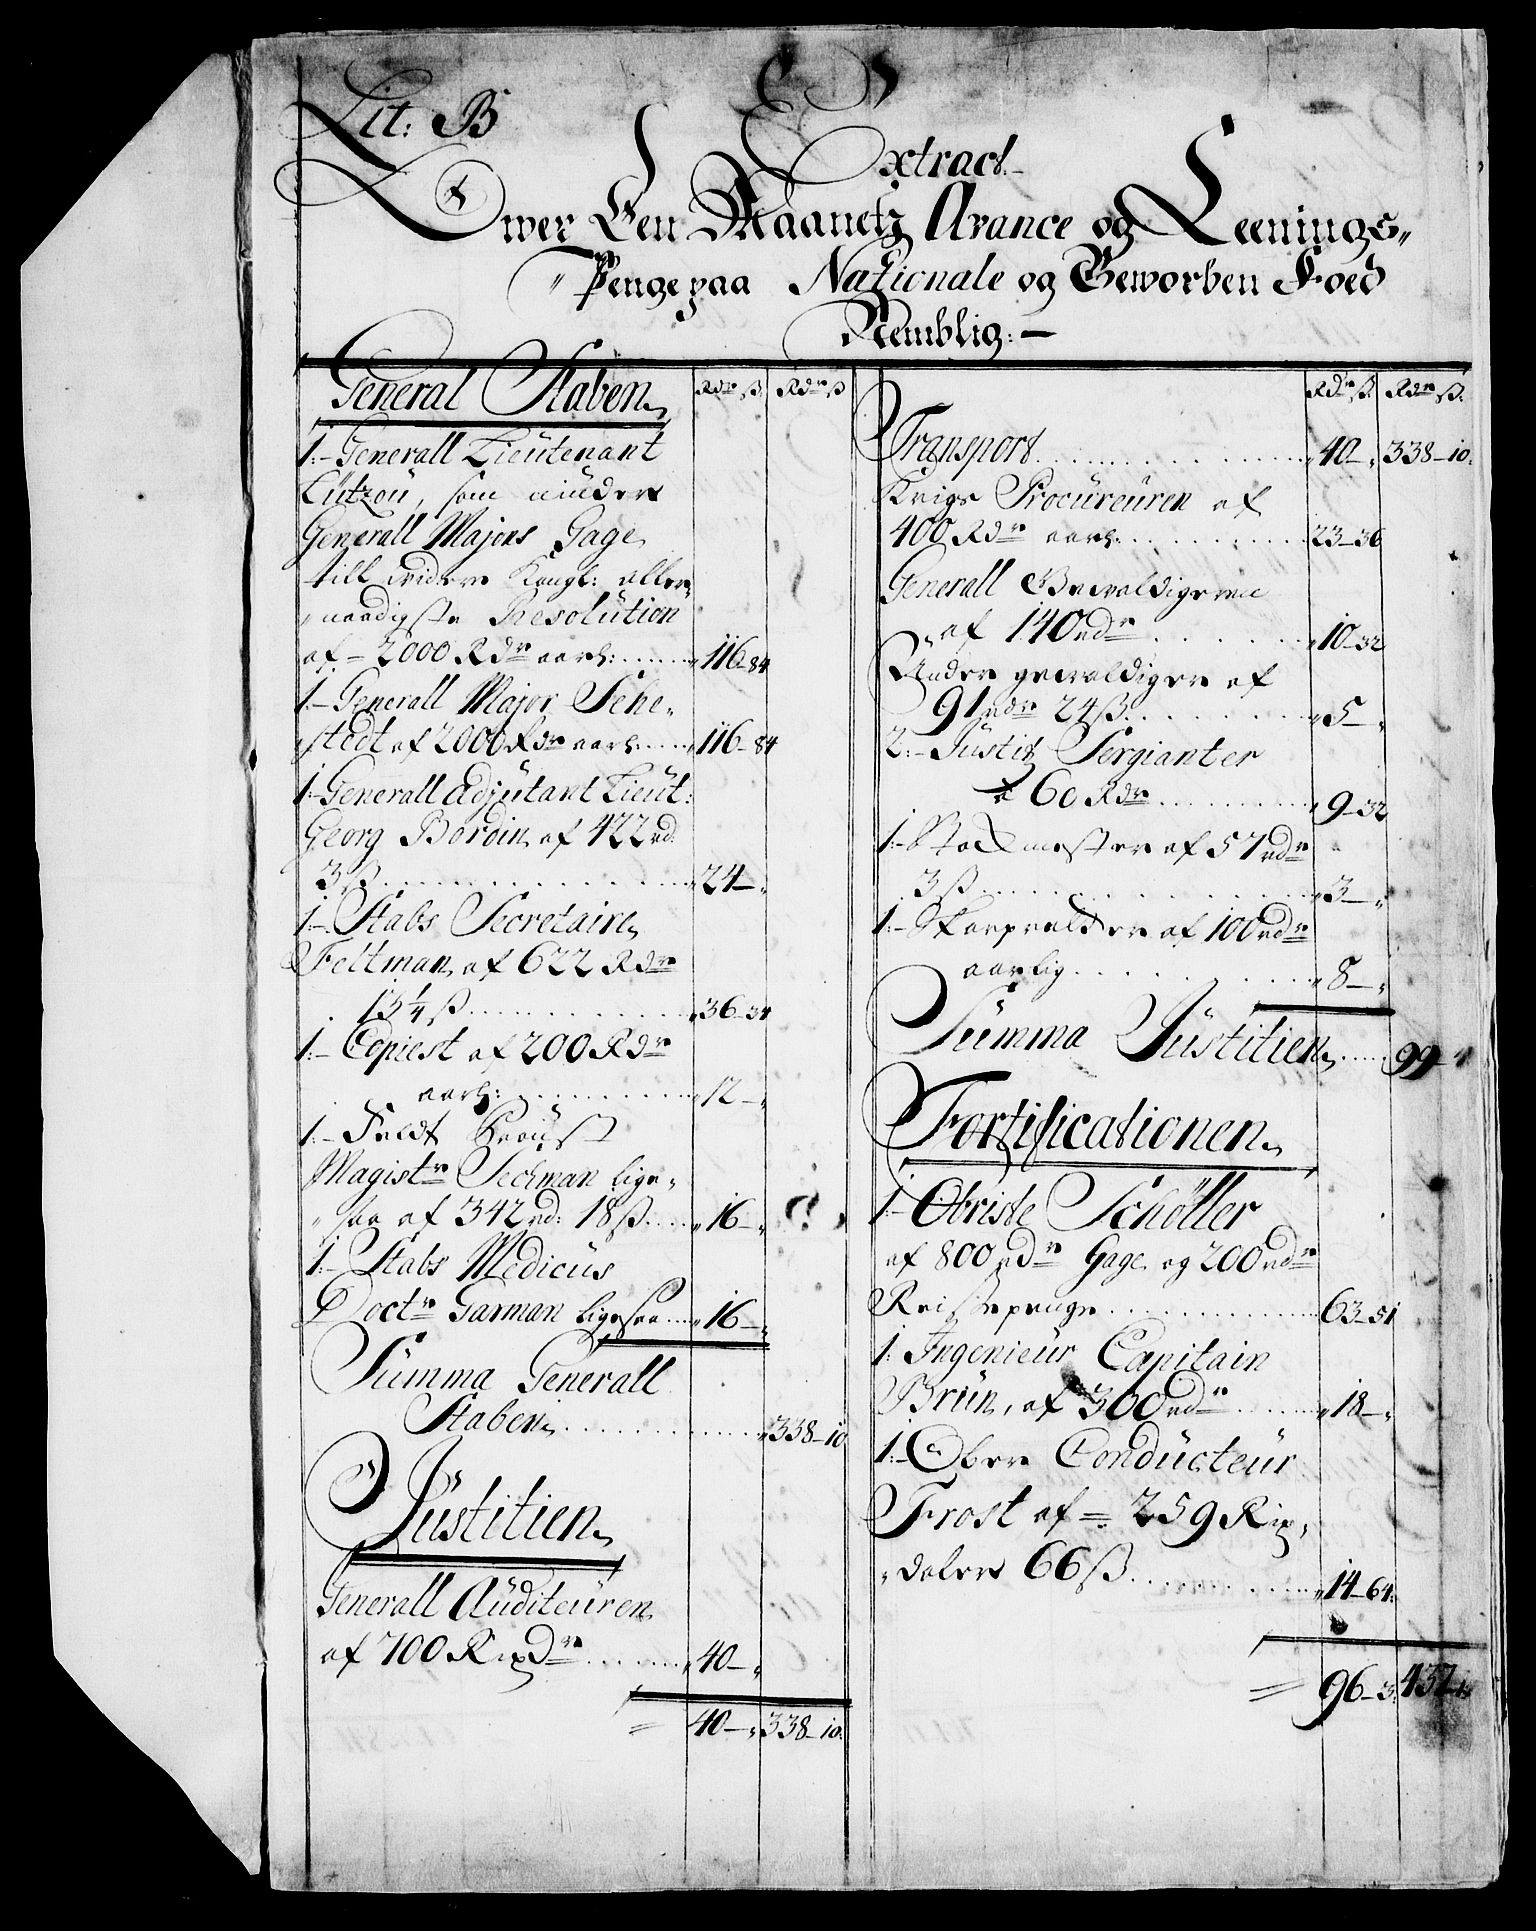 Lit: B
Extract
Over Een Maanetz Avance og Leenings„
„Penge paa Nationale og Geworben Foed
Nemblig: —
General Staben
Rdr ß. Rdr ß
1:– Generall Lieutenant
Lützou, som nÿder
Generall Majors Gage
till videre Kongl: aller„
„naadigste Resolution
af – 2000 Rdr aarl: ..... „116–84
1– Generall Major Sehe„
„stedt af 2000 Rdr aarl: ..... „116–84
1– Generall adjütant Lieut:
Georg Bordin, af 422 rd:
3 ß ..... „24–„
1:– Stabs Secretaire
Feltman, af 622 Rdr
13¼ ß ..... „36–34
1:– Copiest af 200 Rdr
aarl: ..... „12–„
1:– Feldt Proust
Magistr Techman lige„
„saa af 342 rd: 18 ß ..... „16–„
1:– Stabs Medicus
Doctr Garman ligesaa ..... „16–„
Summa Generall
Staben ..... „338–10
Jüstitien
Generall Auditeuren
af 700 RixDr ..... „40–„
= 40–„ 338–10.
Rdr ß. Rdr ß.
Transport ..... „40–„ 338–10.
Krigs Procureuren af
400 Rdr aarl: ..... 23–36
Generall Gevaldigeren
af 140 rdr ..... „10–32
Under gevaldiger af
91 rdr 24 ß ..... „5–„
2:– Justitz Sergianter
a 60 Rdr ..... „9–32
1:– Stockmester af 57 rdr
3 ß ..... „3–„
1:– Skarpretter af 100 rdr
aarlig ..... „8–„
Summa Jüstitien ..... 99–4
Fortificationen
1:– Obriste Schöller
af 800 rdr Gage og 200 rdr
Reisepenge ..... 63–51
1: Ingenieur Capitain
Brün, af 300 rdr ..... „18–„
1:– Ober Conducteur
Frost af – 259 Rix„
„daler 66 ß ..... „14–64.
= 96–3. 437–14